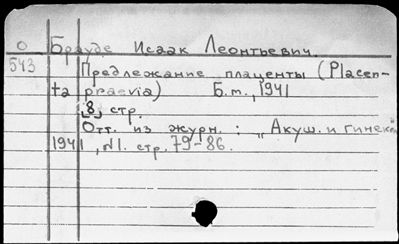 О Брауде Исаак Леонтьевич.
543 Предлежание плаценты (Placen-
ta praevia) Б.м., 1941
[8] стр.
Отт. из журн.: „Акуш. и гинекол
1941, №1. стр. 79-86.